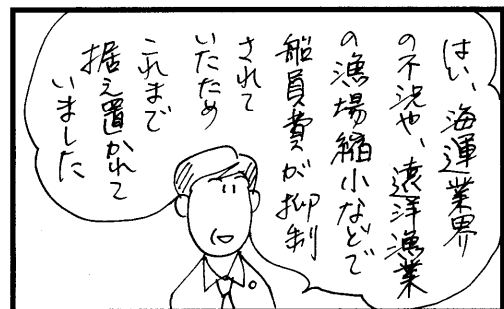 はい、海運業界
の不況や、遠洋漁業
の漁場縮小などで
船員費が抑制
されて
いたため
これまで
据え置かれて
いました